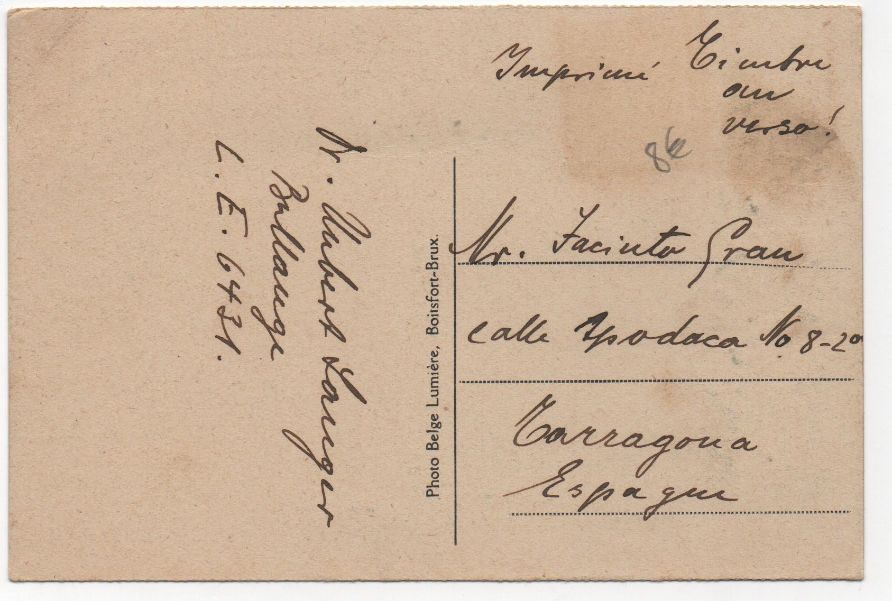 Imprimé Timbre
au
verso!
8k
Mr. Jacinto Grau
calle Apodaca No 8-2º
Tarragona
Espagne
Photo Belge Lumière, Boitsfort-Brux.
Dr. Hubert Langer
Bullange
L. E. 6431.